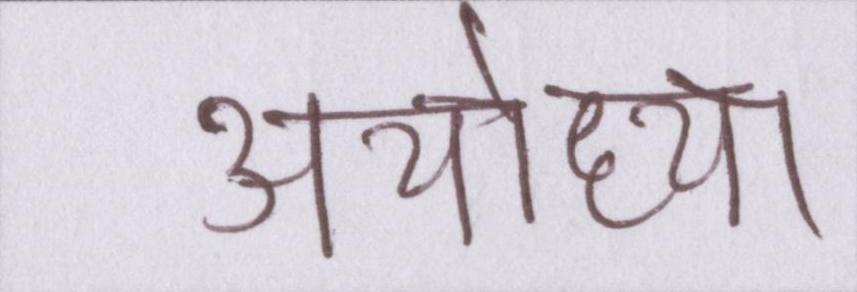 अयोध्या